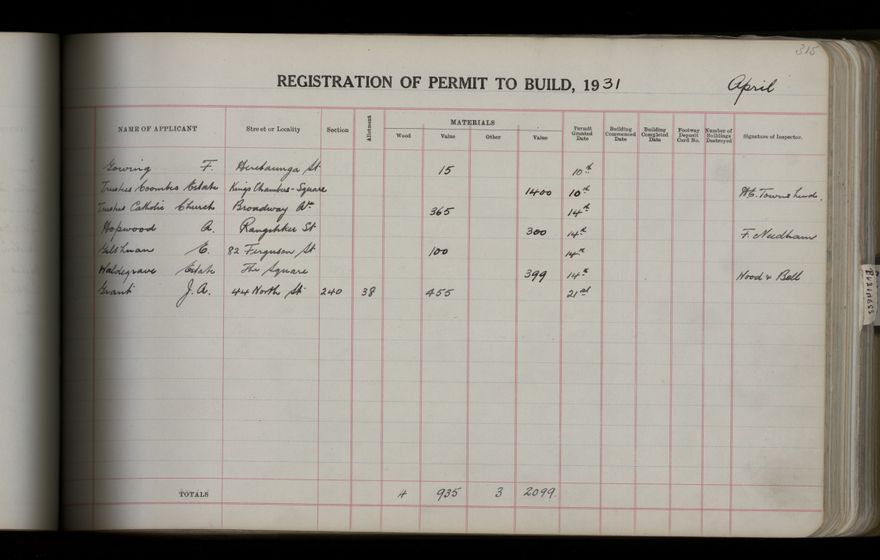 315
REGISTRATION OF PERMIT TO BUILD, 1931 April
NAME OF APPLICANT Street or Locality Section Allotment MATERIALS Wood Value Other Value Permit Granted Date Building Commenced Date Building Completed Date Footway Deposit Card No. Number of Buildings Destroyed Signature of Inspector.
Gowing F. Heretaunga St 15 10th
Trustees Coombs Estate Kings Chambers - Square 1400 10th H.E. Townshend.
Trustees Catholic Church Broadway Av. 365 14th
Hopwood A. Rangitikei St 300 14th F. Needham
E. 82 Ferguson St 100 14th
Waldegrave Estate The Square 399 14th Wood & Bell
Grant J.A. 44 North St 240 38 455 21st
TOTALS 4 935 3 2099
BUSINESS